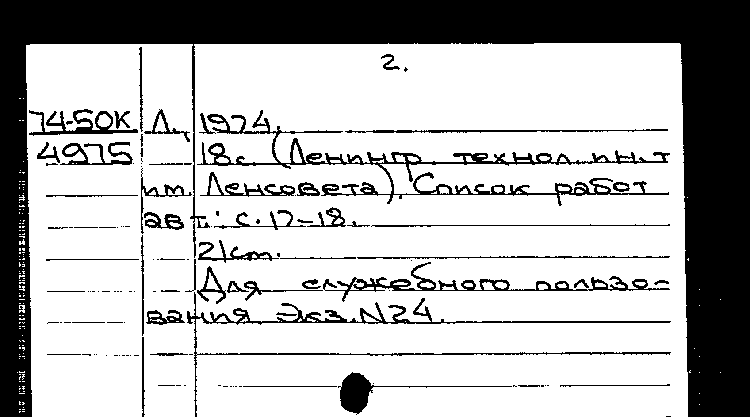 2.
74-50К Л., 1974.
4975 18с. (Ленингр. технол. ин-т
им. Ленсовета). Список работ
авт.: с.17-18.
21cm.
Для служебного пользо-
вания Экз.N24.